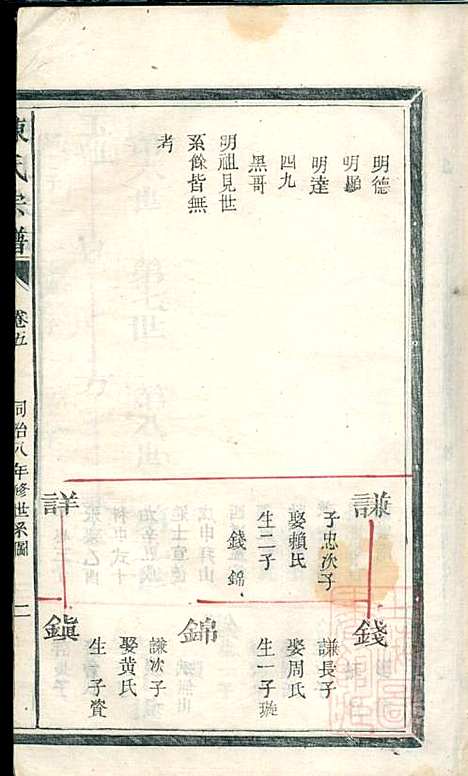 明德
明顯
明達
四九
黑哥
明祖見世
系餘皆無
考
謙
子忠次子
娶賴氏
生二子
錢 錦
詳
錢
謙長子
娶周氏
生一子璇
錦
謙次子
娶黃氏
生一子賓
鎮
陳氏宗譜
卷五
同治八年修世系圖
二